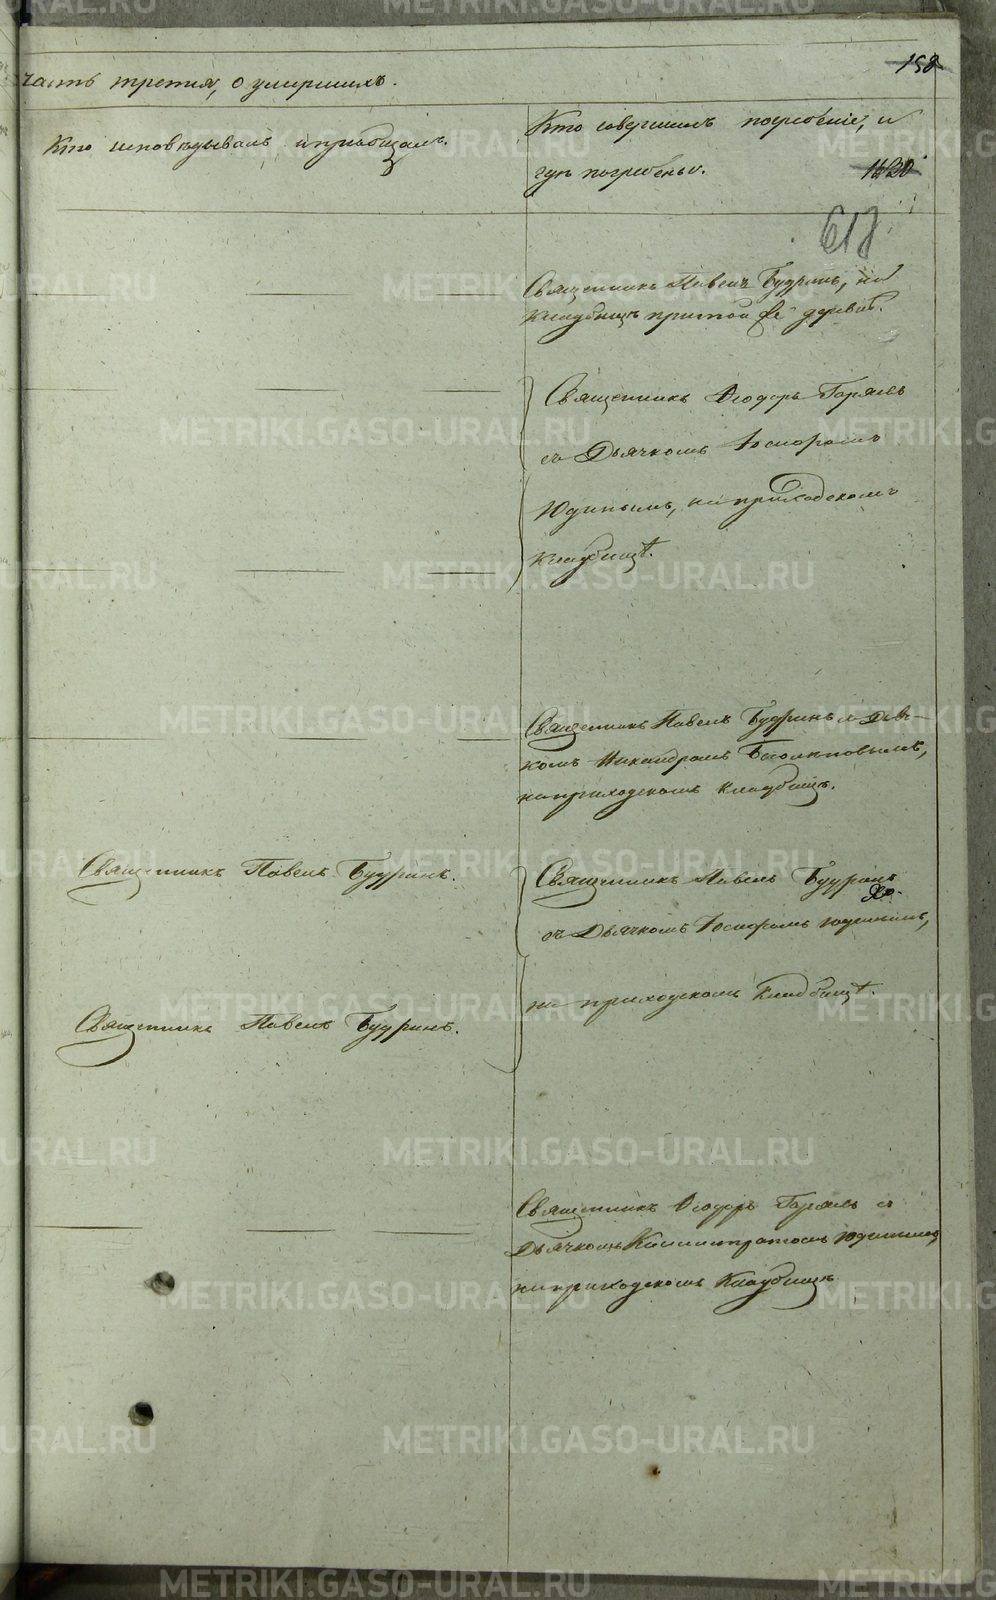 часть третия, о умершихъ.
158
Кто исповѣдывалъ и пріобщалъ.
Кто совершилъ погребеніе, и
гдѣ погребены.
1620
617
Священникъ Павелъ Будринъ, на
кладбищѣ при той же деревнѣ.
Священникъ Ѳеодоръ Горяевъ
съ Дьячкомъ
Юдинымъ, на приходскомъ
кладбищѣ.
Священникъ Павелъ Будринъ съ Дьяч-
комъ Никандромъ
на приходскомъ кладбищѣ.
Священникъ Павелъ Будринъ.
Священникъ Павелъ Будринъ
съ Дьячкомъ Юдинымъ,
на приходскомъ кладбищѣ.
Священникъ Павелъ Будринъ.
Священникъ Ѳеодоръ Горяевъ съ
Дьячкомъ Каллистратомъ Юдинымъ,
на приходскомъ кладбищѣ
METRIKI.GASO-URAL.RU